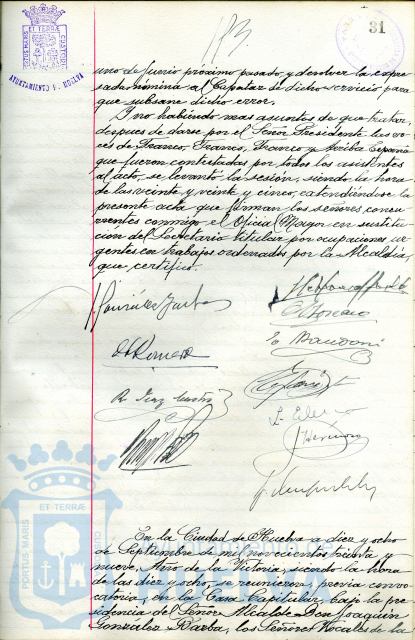 PORTUS MARIS ET TERRÆ CUSTODIA
AYUNTAMIENTO D. HUELVA
31
uno de Junio próximo pasado, y devolver la expre-
sada nómina al Capataz de dicho servicio para
que subsane dicho error.
Y no habiendo mas asuntos de que tratar,
despues de darse por el Señor Presidente las vo-
ces de Franco, Franco, Franco y Arriba España
que fueron contestadas por todos los asistentes
al acto, se levantó la sesión, siendo la hora
de las veinte y veinte y cinco, extendiéndose la
presente acta que firman los señores concu-
rrentes conmigo el Oficial Mayor en sustitu-
ción del Secretario titular por ocupaciones ur-
gentes con trabajos ordenados por la Alcaldía,
que certifico.
J. González Barba
A. Romero
E. Mandoni
R. Diaz
J. Hermoso
PORTUS MARIS ET TERRÆ CUSTODIA
En la Ciudad de Huelva a diez y ocho
de Septiembre de mil novecientos treinta y
nueve, Año de la Victoria, siendo la hora
de las diez y ocho, se reunieron, previa convo-
catoria, en la Casa Capitular, bajo la pre-
sidencia del Señor Alcalde Don Joaquin
González Barba, los Señores Vocales de la